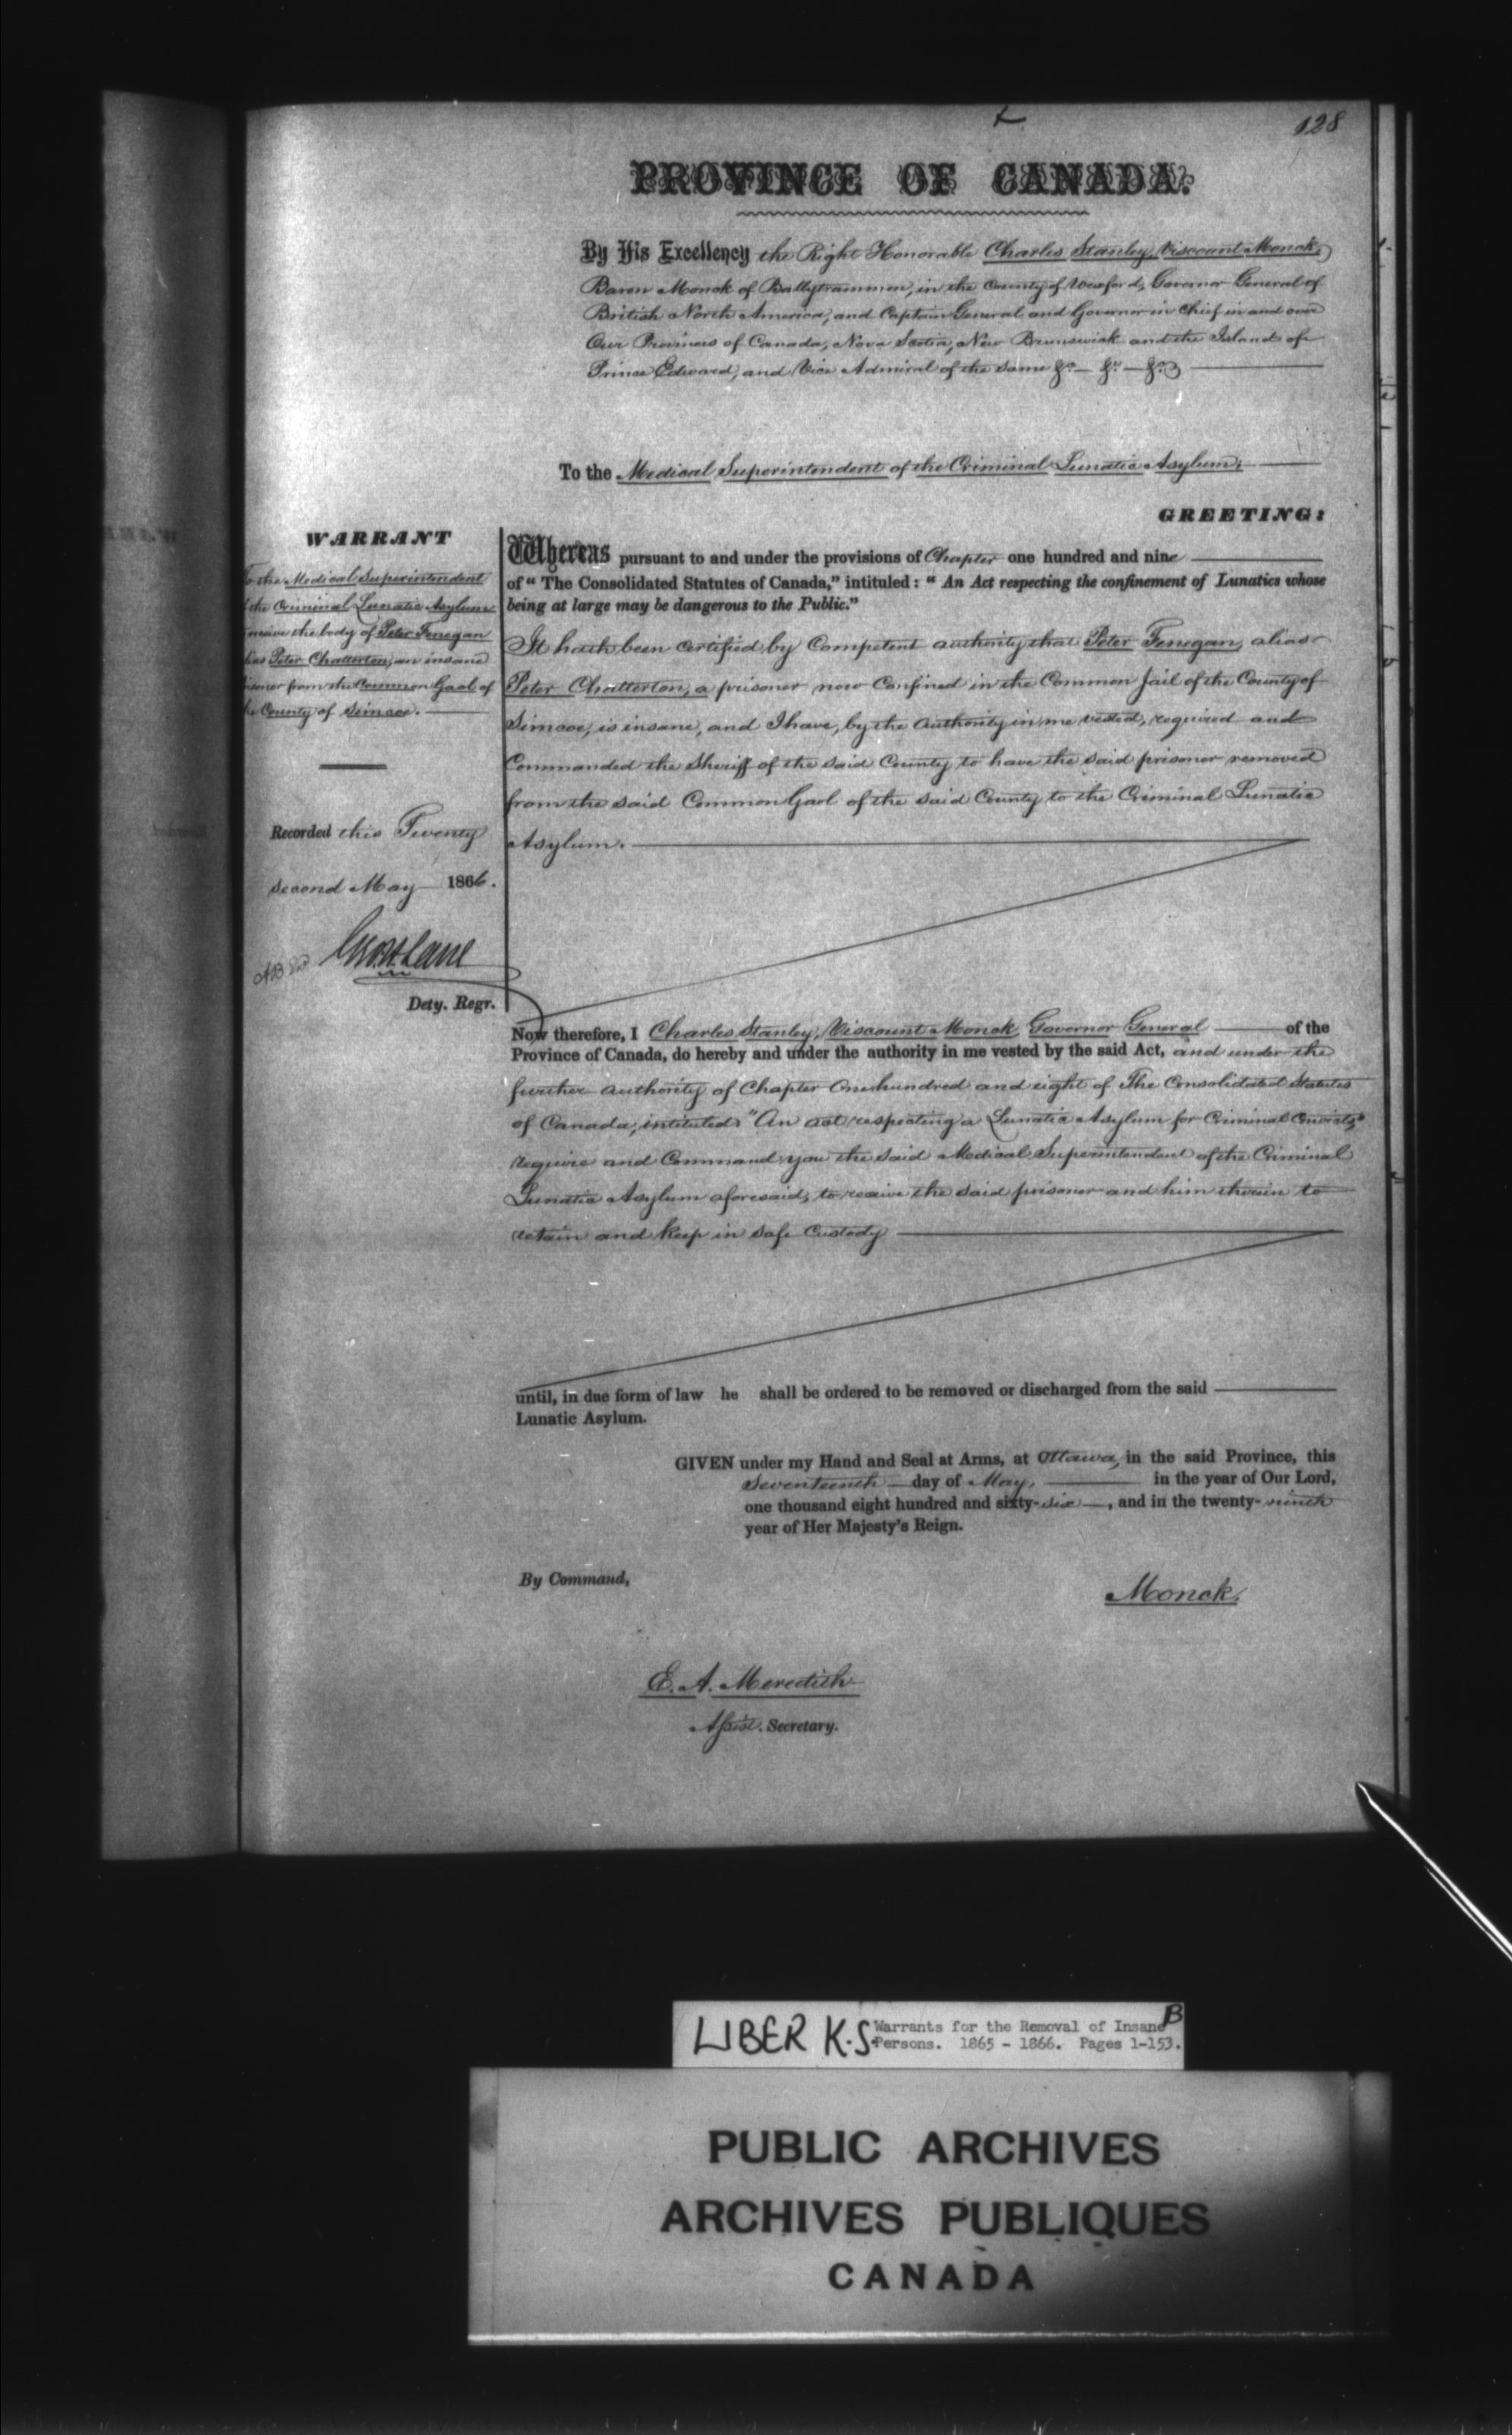 128
PROVINCE OF CANADA.
By His Excellency the Right Honorable Charles Stanley, Viscount Monck,
Baron Monck of Ballytrammon, in the County of Wexford, Governor General of
British North America, and Captain General and Governor in Chief in and over
Our Provinces of Canada, Nova Scotia, New Brunswick and the Island of
Prince Edward, and Vice Admiral of the same &c. — &c. — &c.
To the Medical Superintendent of the Criminal Lunatic Asylum;
GREETING:
WARRANT
To the Medical Superintendent
the Criminal Lunatic Asylum
receive the body of Peter Fenegan
Peter Chatterton, an insane
from the Common Gaol of
County of Simcoe.
Recorded this Twenty
second May 1866.
Geo. H. Lane
Dety. Regr.
Whereas pursuant to and under the provisions of Chapter one hundred and nine
of "The Consolidated Statutes of Canada," intituled: "An Act respecting the confinement of Lunatics whose
being at large may be dangerous to the Public."
It hath been certified by Competent authority that Peter Fenegan, alias
Peter Chatterton, a prisoner now Confined in the Common Jail of the County of
Simcoe, is insane, and I have, by the authority in me vested, required and
Commanded the Sheriff of the said County to have the said prisoner removed
from the said Common Gaol of the said County to the Criminal Lunatic
Asylum.
Now therefore, I Charles Stanley, Viscount Monck, Governor General of the
Province of Canada, do hereby and under the authority in me vested by the said Act, and under the
further authority of Chapter One hundred and eight of The Consolidated Statutes
of Canada, intituled: "An act respecting a Lunatic Asylum for Criminal Convicts,"
require and Command you the said Medical Superintendent of the Criminal
Lunatic Asylum aforesaid, to receive the said prisoner and him therein to
retain and keep in safe Custody
until, in due form of law he shall be ordered to be removed or discharged from the said
Lunatic Asylum.
GIVEN under my Hand and Seal at Arms, at Ottawa, in the said Province, this
Seventeenth day of May, in the year of Our Lord,
one thousand eight hundred and sixty-six, and in the twenty-ninth
year of Her Majesty's Reign.
By Command,
Monck.
E. A. Meredith
Assist. Secretary.
LIBER K.S. Warrants for the Removal of Insane B
Persons. 1865 - 1866. Pages 1-153.
PUBLIC ARCHIVES
ARCHIVES PUBLIQUES
CANADA